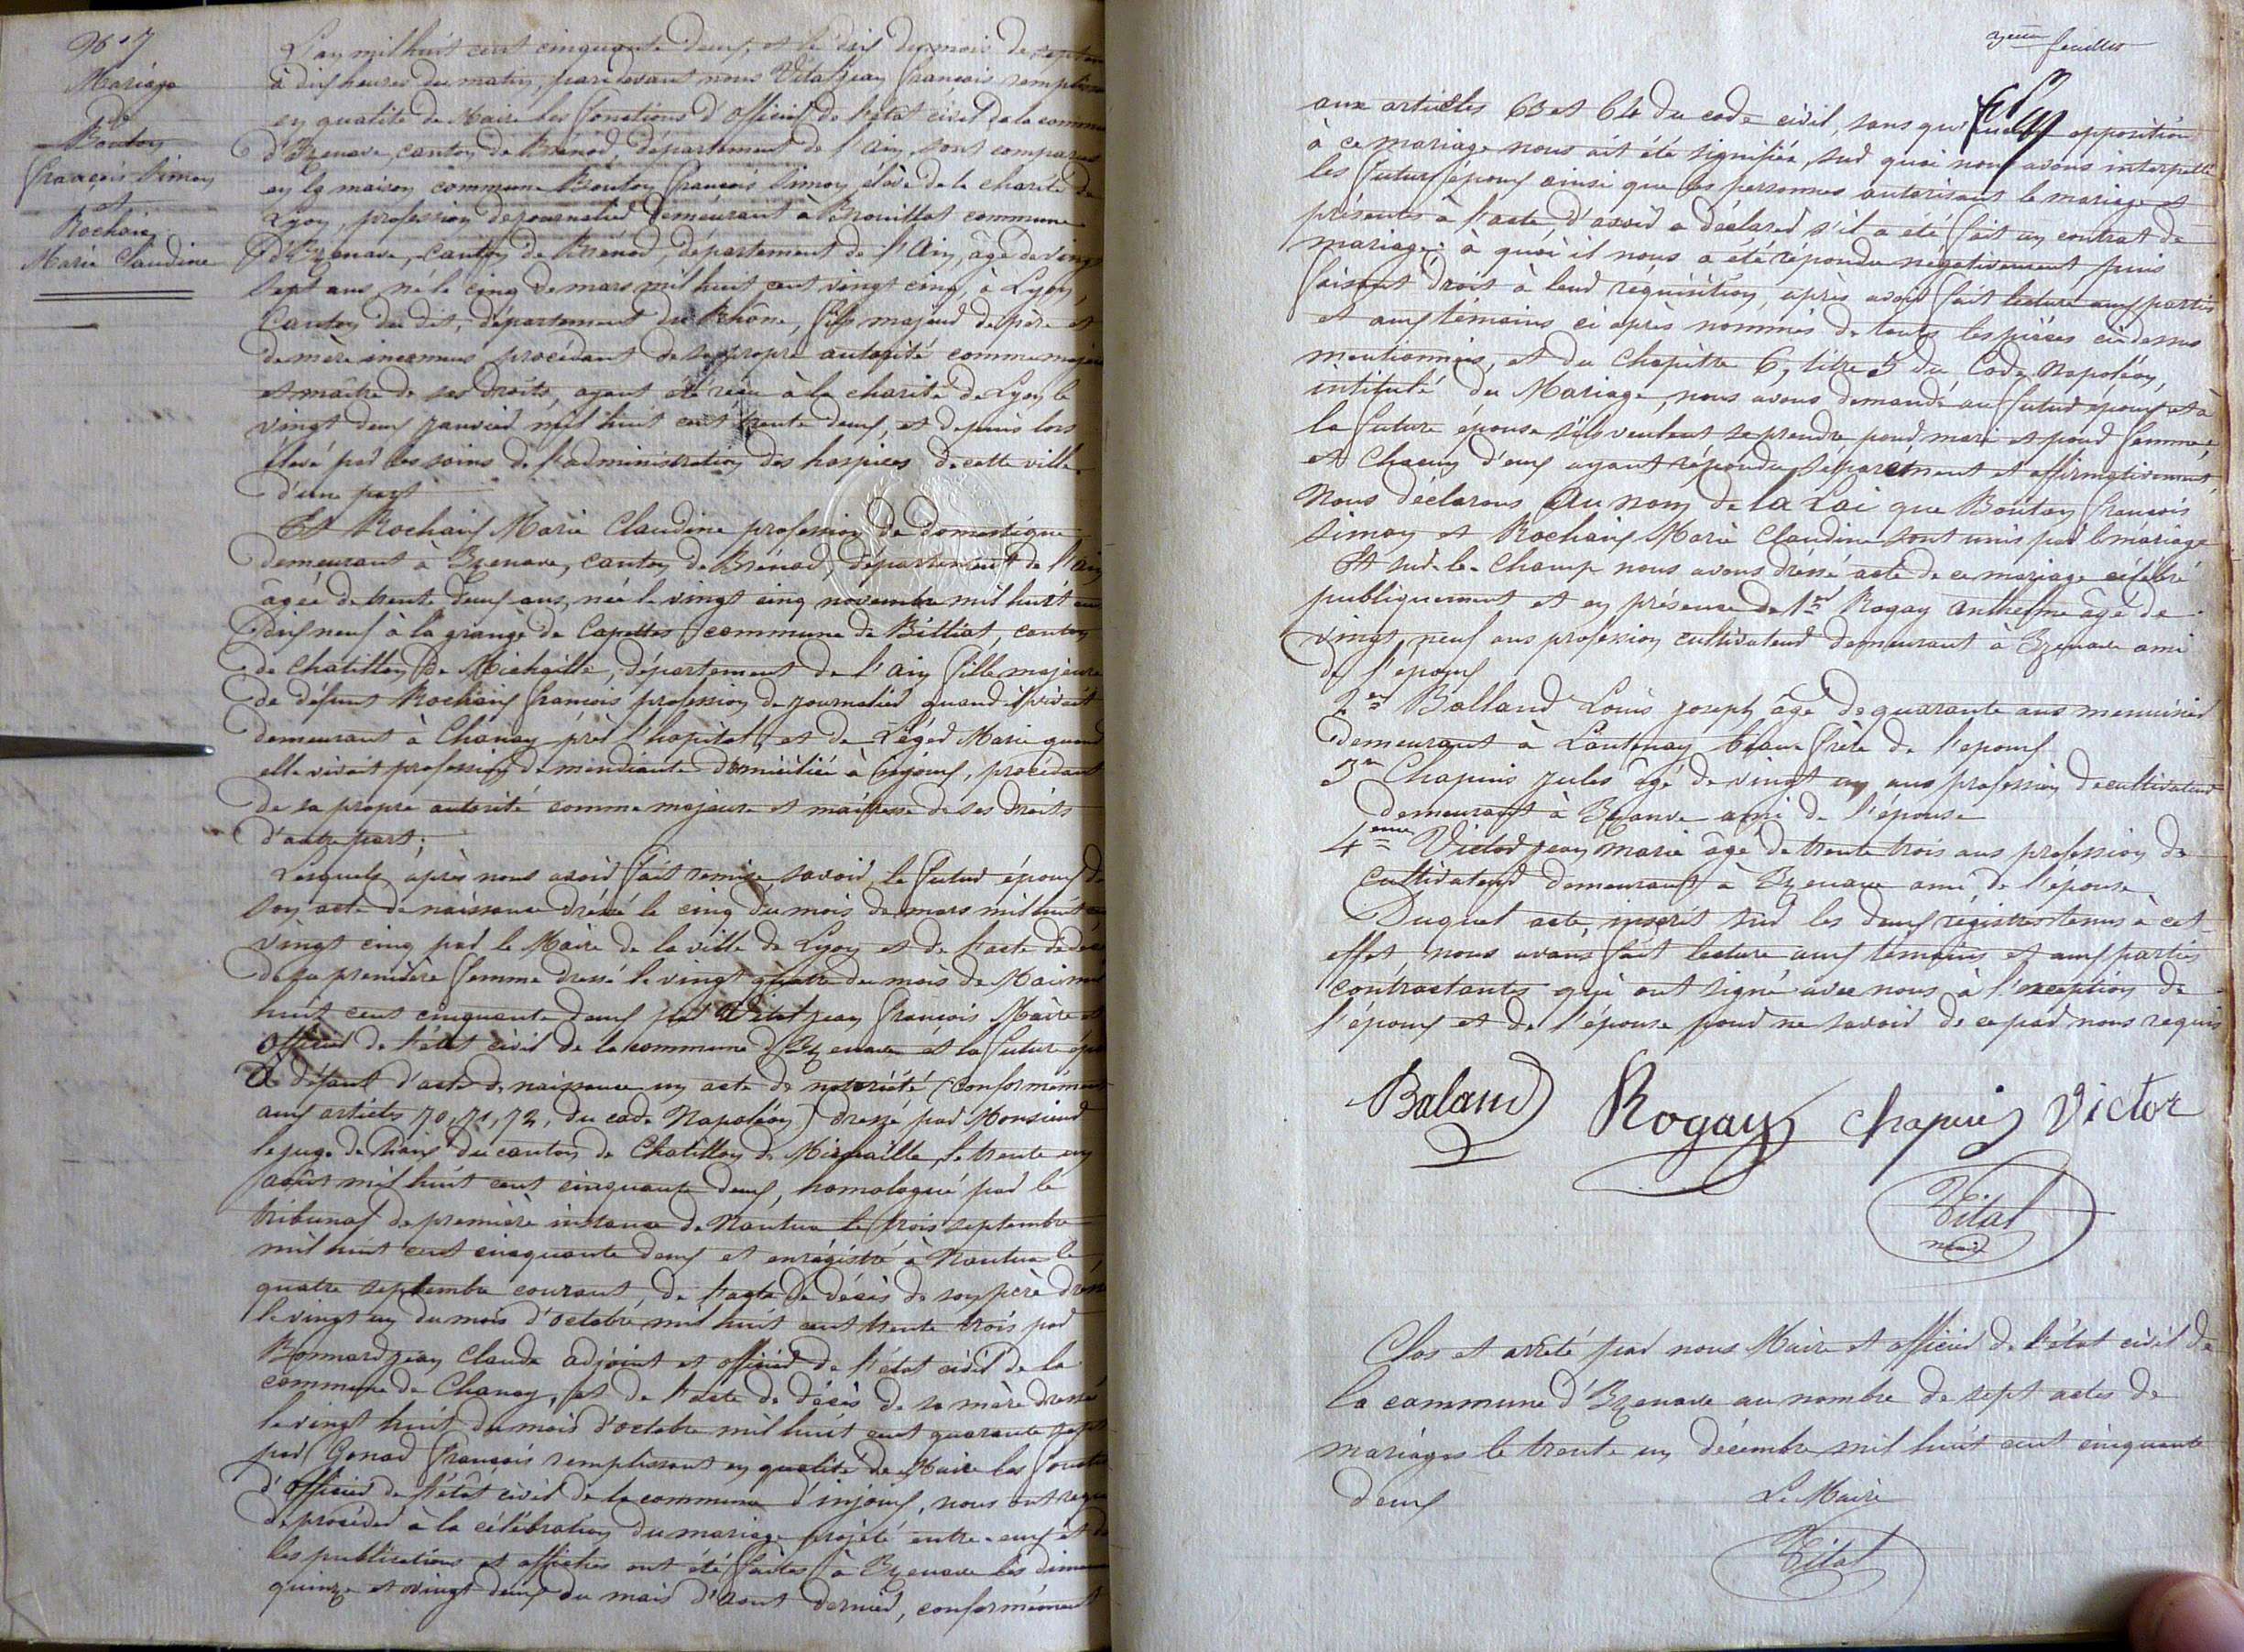 N° 7
Mariage
de
Bouton
françois Simon
et
Rochaix
Marie Claudine
L'an mil huit cent cinquante deux, et le dix du mois de septem
à dix heures du matin, pardevant nous Vital jean françois remplissa
en qualité de Maire les fonctions d'Officier de l'état civil de la commu
d'Izenave, canton de Brénod, département de l'ain, sont comparus
en la maison commune Bouton françois Simon élève de la charité de
Lyon, profession de journalier demeurant à Brouillat commune
d'Izenave, canton de Brénod, département de l'Ain, âgé de vingt
sept ans, né le cinq de mars mil huit cent vingt cinq, à Lyon,
Canton du dit, département du Rhône, fils majeur de père et
de mère inconnus procédant de sa propre autorité comme majeur
et maître de ses droits, ayant été reçu à la charité de Lyon le
vingt deux janvier mil huit cent trente deux, et depuis lors
élevé par les soins de l'administration des hospices de cette ville
d'une part
Et Rochaix Marie Claudine profession de domestique
demeurant à Izenave, canton de Brénod, département de l'ain
âgée de trente deux ans, née le vingt cinq novembre mil huit cent
dix neuf à la grange de Capettes commune de Billiat, canton
de Chatillon de Michaille, département de l'ain fille majeure
de défunt Rochaix françois profession de journalier quand il vivait
demeurant à Chanay près l'hopital, et de Léger Marie quand
elle vivait profession de mendiante domiciliée à injoux, procédant
de sa propre autorité comme majeure et maîtresse de ses droits
d'autre part;
Lesquels après nous avoir fait remise, savoir le futur époux de
son acte de naissance dréssé le cinq du mois de mars mil huit cent
vingt cinq par le Maire de la ville de Lyon et de l'acte de décès
de sa première femme dressé le vingt quatre du mois de Mai mil
huit cent cinquante deux par Vital jean françois Maire et
Officier de l'état civil de la commune d'Izenave et la future épouse
A défaut d'acte de naissance un acte de notoriété (conformément
aux articles 70, 71, 72, du code Napoléon) dressé par Monsieur
le juge de Paix du canton de Chatillon de Michaille, le trente un
août mil huit cent cinquante deux, homologué par le
tribunal de première instance de Nantua le trois septembre
mil huit cent cinquante deux et enrégistré à Nantua le
quatre septembre courant, de l'acte de décès de son père dréssé
le vingt un du mois d'octobre mil huit cent trente trois par
Bonnard jean Claude adjoint et officier de l'état civil de la
commune de Chanay, et de l'acte de décès de sa mère dressé
le vingt huit du mois d'octobre mil huit cent quarante sept
par Gonod françois remplissant en qualité de Maire les fonctions
d'Officier de l'état civil de la commune d'injoux, nous ont requis
de procéder à la célébration du mariage projeté entre-eux et dont
les publications et affiches ont été faites à Izenave les diman
quinze et vingt deux du mois d'Aout dernier, conformément
3eme feuillet
aux articles 63 et 64 du code civil, sans qu'aucune opposition
à ce mariage nous ait été signifiée, sur quoi nous avons interpellé
les futurs époux ainsi que les personnes autorisant le mariage et
présentes à l'acte, d'avoir a déclarer s'il a été fait un contrat de
mariage: à quoi il nous a été répondu négativement puis
faisant droit à leur réquisition, après avoir fait lecture aux parties
et aux témoins ci après nommés de toutes les pièces ci dessus
mentionnées, et du Chapitre 6, titre 5 du Code Napoléon,
intitulé du Mariage, nous avons demandé au futur époux et à
la future épouse s'ils veulent se prendre pour mari et pour femme:
et Chacun d'eux ayant répondu séparément et affirmativement,
Nous déclarons Au nom de la Loi que Bouton françois
Simon et Rochaix Marie Claudine sont unis par le mariage
Et sur-le-Champ nous avons dréssé acte de ce mariage célébré
publiquement et en présence de 1er Rogay Anthelme âgé de
vingt neuf ans profession cultivateur demeurant à Izenave ami
de l'époux
2em Balland Louis joseph âgé de quarante ans menuisier
demeurant à Lantenay beau frère de l'epoux
3em Chapuis jules âgé de vingt un ans profession de cultivateur
demeurant à Izenave ami de l'épouse
4eme Victor jean marie âgé de trente trois ans profession de
Cultivateur demeurant à Izenave ami de l'épouse
Duquel acte, inscrit sur les deux régistres tenus à cet
effet nous avons fait lecture aux témoins et aux parties
contractantes qui ont signé avec nous à l'exception de
l'époux et de l'épouse pour ne savoir de ce par nous requis
Baland Rogay Chapuis Victor
Vital
maire
Clos et arrêté par nous Maire et officier de l'état civil de
la commune d'Izenave au nombre de sept actes de
mariages le trente un décembre mil huit cent cinquante
deux
Le Maire
Vital